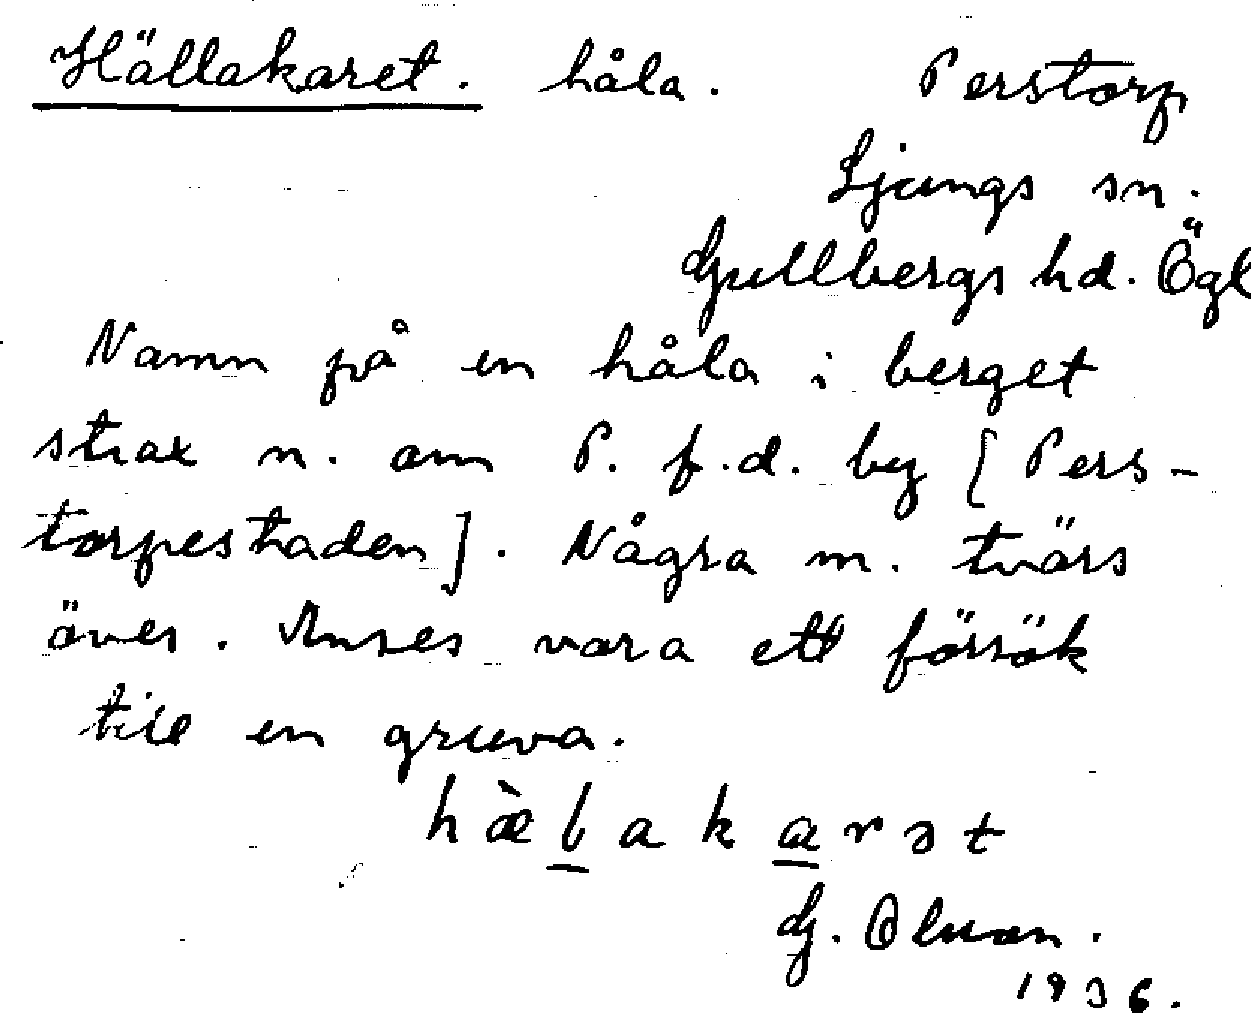 Hällakaret. håla. Perstorp
Ljungs sn.
Gullbergs hd. Ögl
Namn på en håla i berget
strax n. om P. f.d. by [Pers-
torpestaden]. Några m. tvärs
över. Anses vara ett försök
till en gruva.
hæ̀lakarət
G. Olsson.
1936.